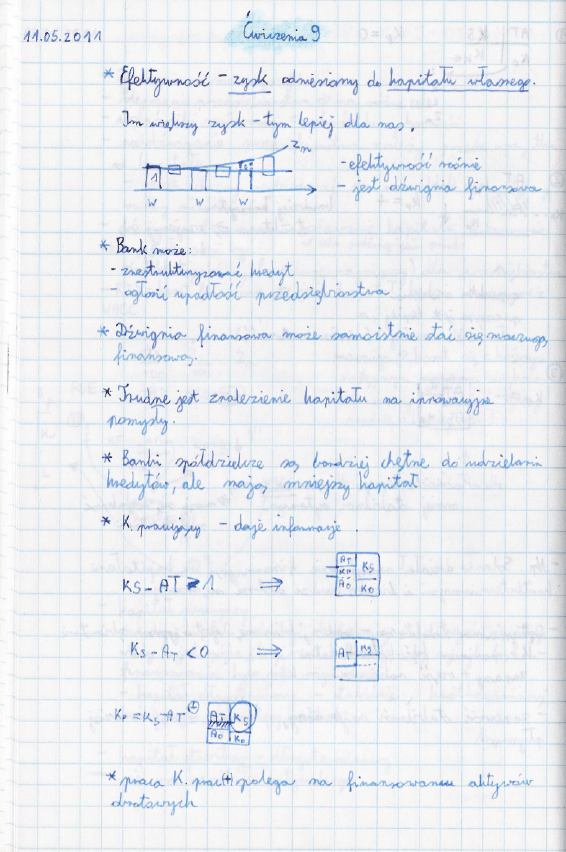 11.05.2011
Ćwiczenia 9
* Efektywność - zysk odniesiony do kapitału własnego.
Im większy zysk - tym lepiej dla nas.
zn
1
W W W
- efektywność rośnie
- jest dźwignia finansowa
* Bank może:
- zrestrukturyzować kredyt
- ogłosić upadłość przedsiębiorstwa
* Dźwignia finansowa może samoistnie stać się maczugą
finansową.
* Trudne jest znalezienie kapitału na innowacyjne
pomysły.
* Banki spółdzielcze są bardziej chętne do udzielania
kredytów, ale mają mniejszy kapitał
* K. pracujący - daje informacje.
KS - AT > 1 ⇒
AT KS
KP
AO KO
KS - AT < 0 ⇒
AT KS
KP = KS - AT (+)
AT KS
AO KO
* praca K. prac (+) polega na finansowaniu aktywów
obrotowych